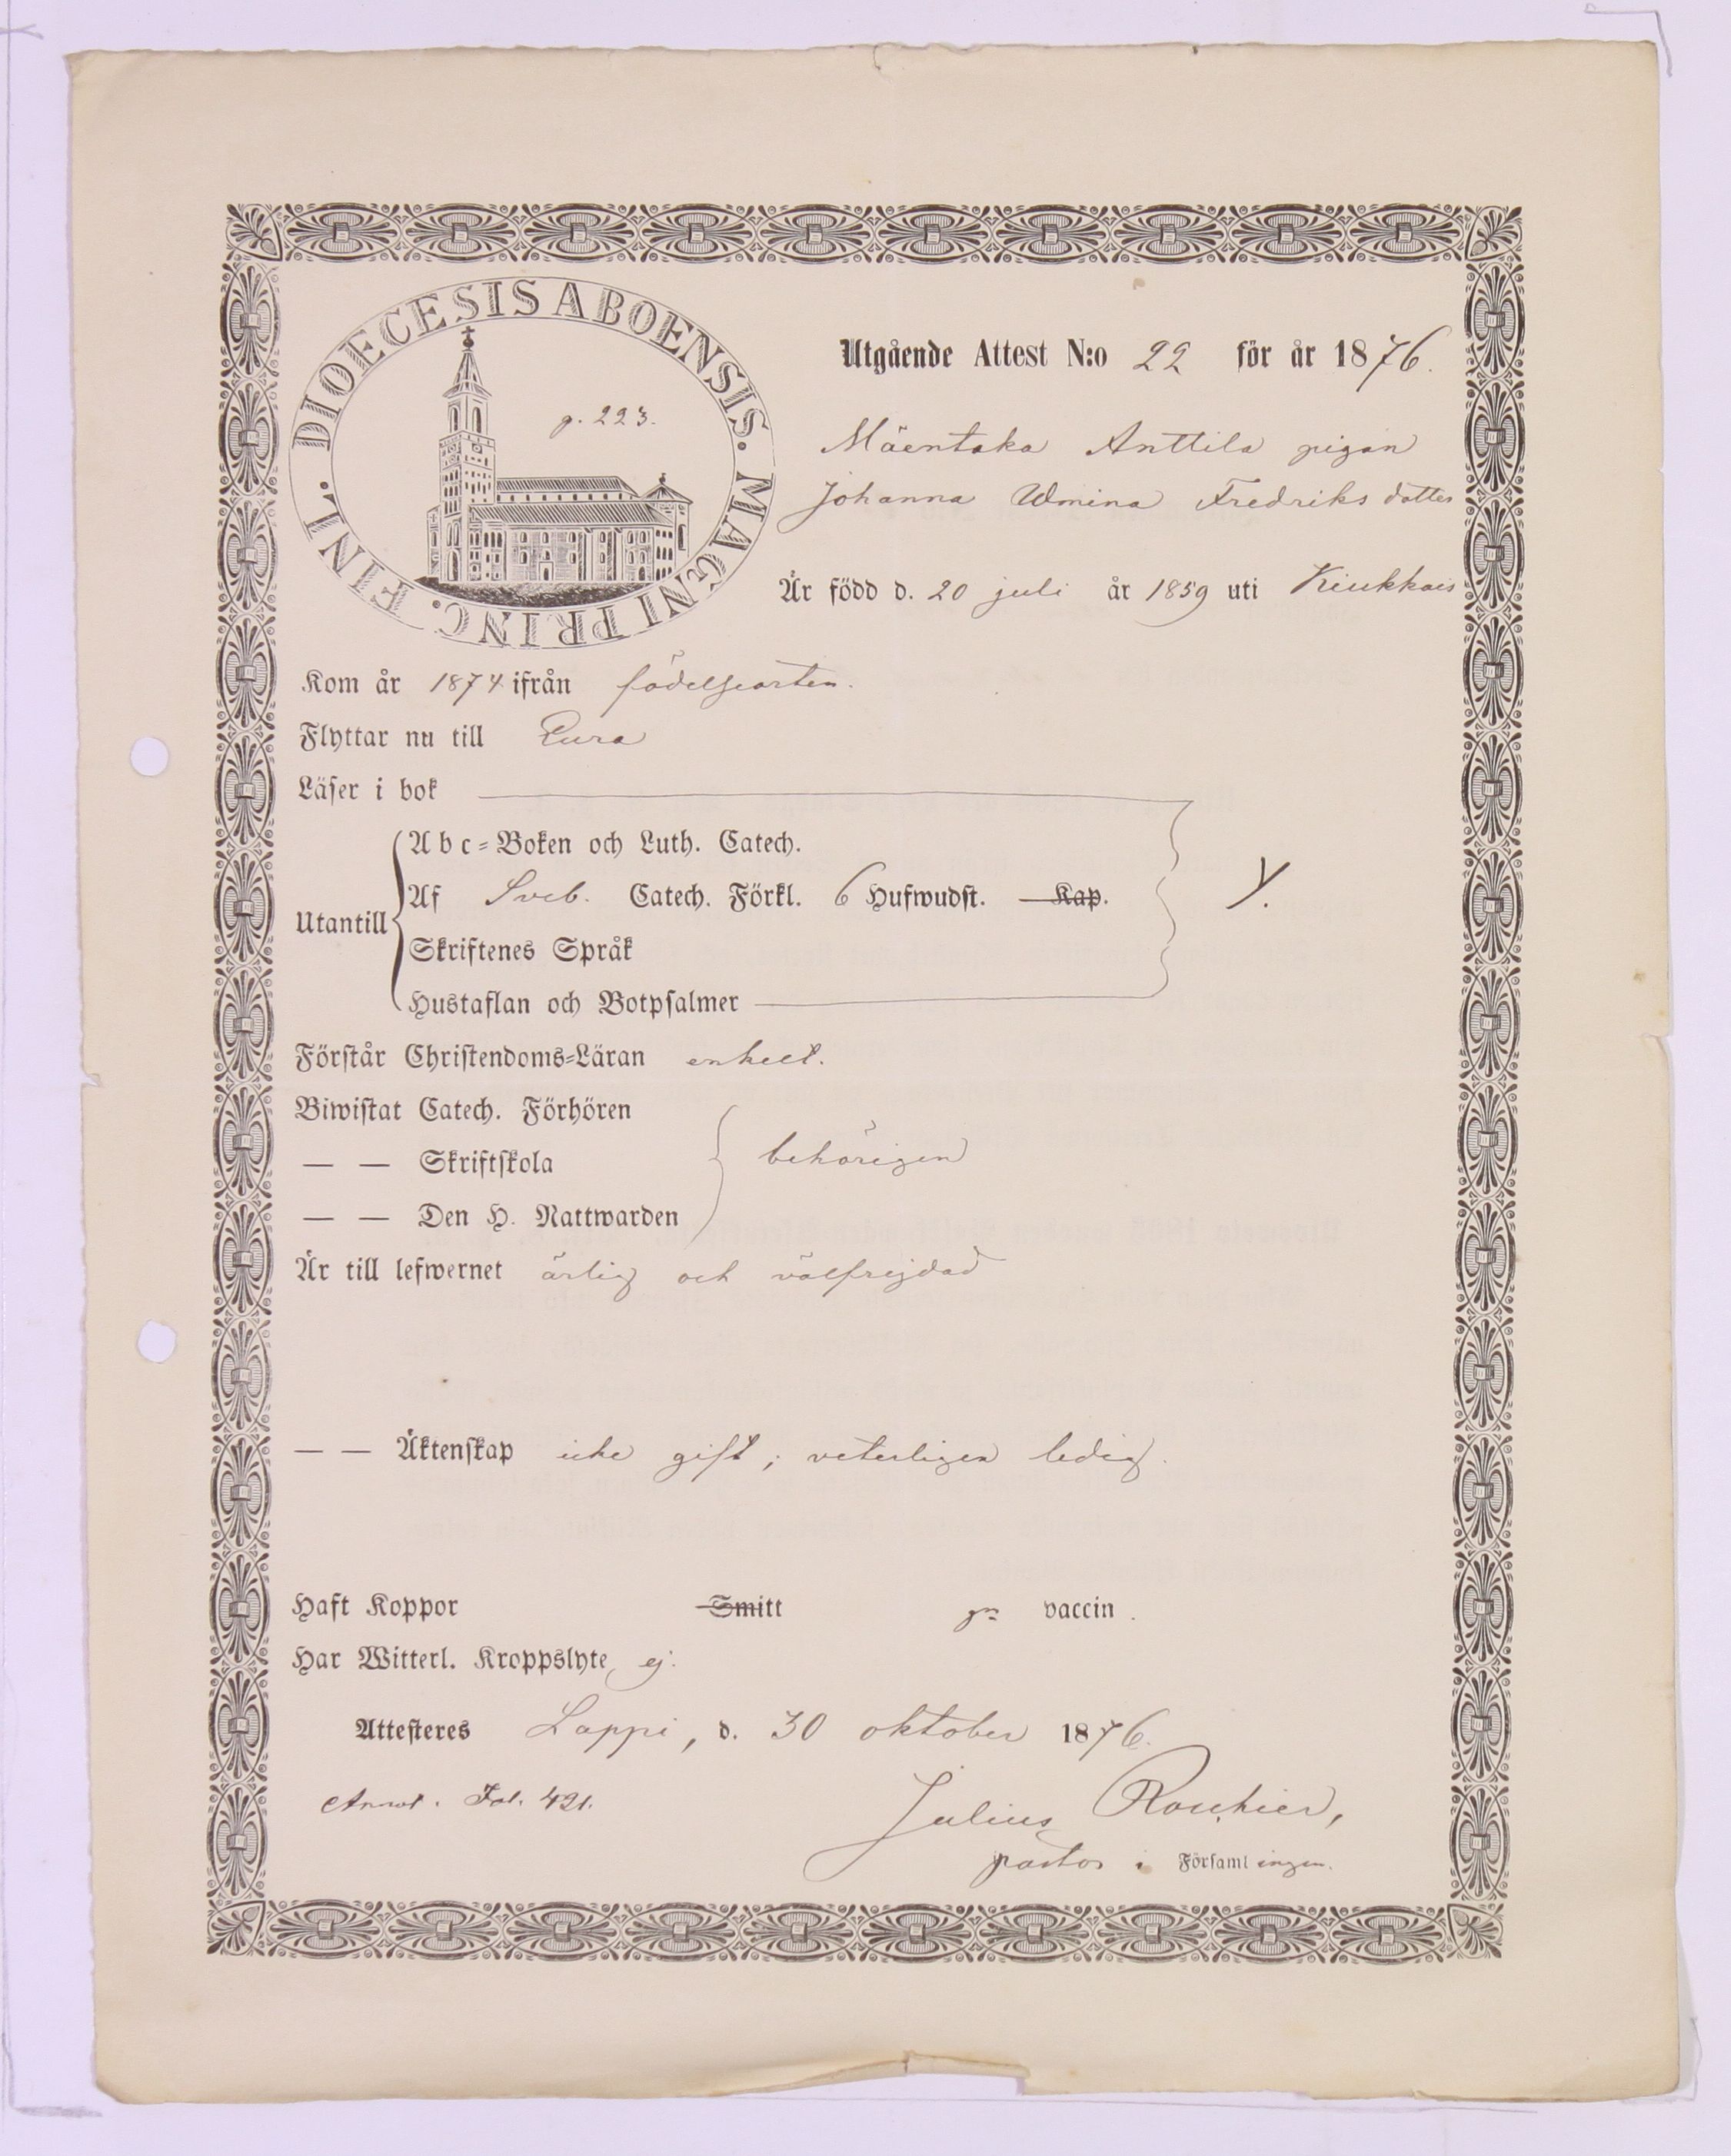 DIOECESIS ABOENSIS. MAGNI PRINC. FINL.
p. 223.
Utgående Attest N:o 22 för år 1876.
Mäentaka Anttila pigan
Johanna Wmina Fredriks dotter
Är född d. 20 juli år 1859 uti Kiukkais
Kom år 1874 ifrån födelseorten.
Flyttar nu till Eura
Läser i bok
Abc-Boken och Luth. Catech.
Utantill
Af Sveb. Catech. Förkl. 6 Hufwudst. Kap.
Y.
Skriftenes Språk
Hustaflan och Botpsalmer
Förstår Christendoms-Läran enkelt.
Biwistat Catech. Förhören
— — Skriftskola
behörigen
— — Den H. Nattwarden
Är till lefwernet ärlig och välfrejdad
— — Äktenskap icke gift; veterligen ledig.
Haft Koppor Smitt vaccin.
Har Witterl. Kroppslyte, ej.
Attesteres Lappi, d. 30 oktober 1876.
Annot. Fol. 421.
Julius Rouchier,
pastor i Församlingen.